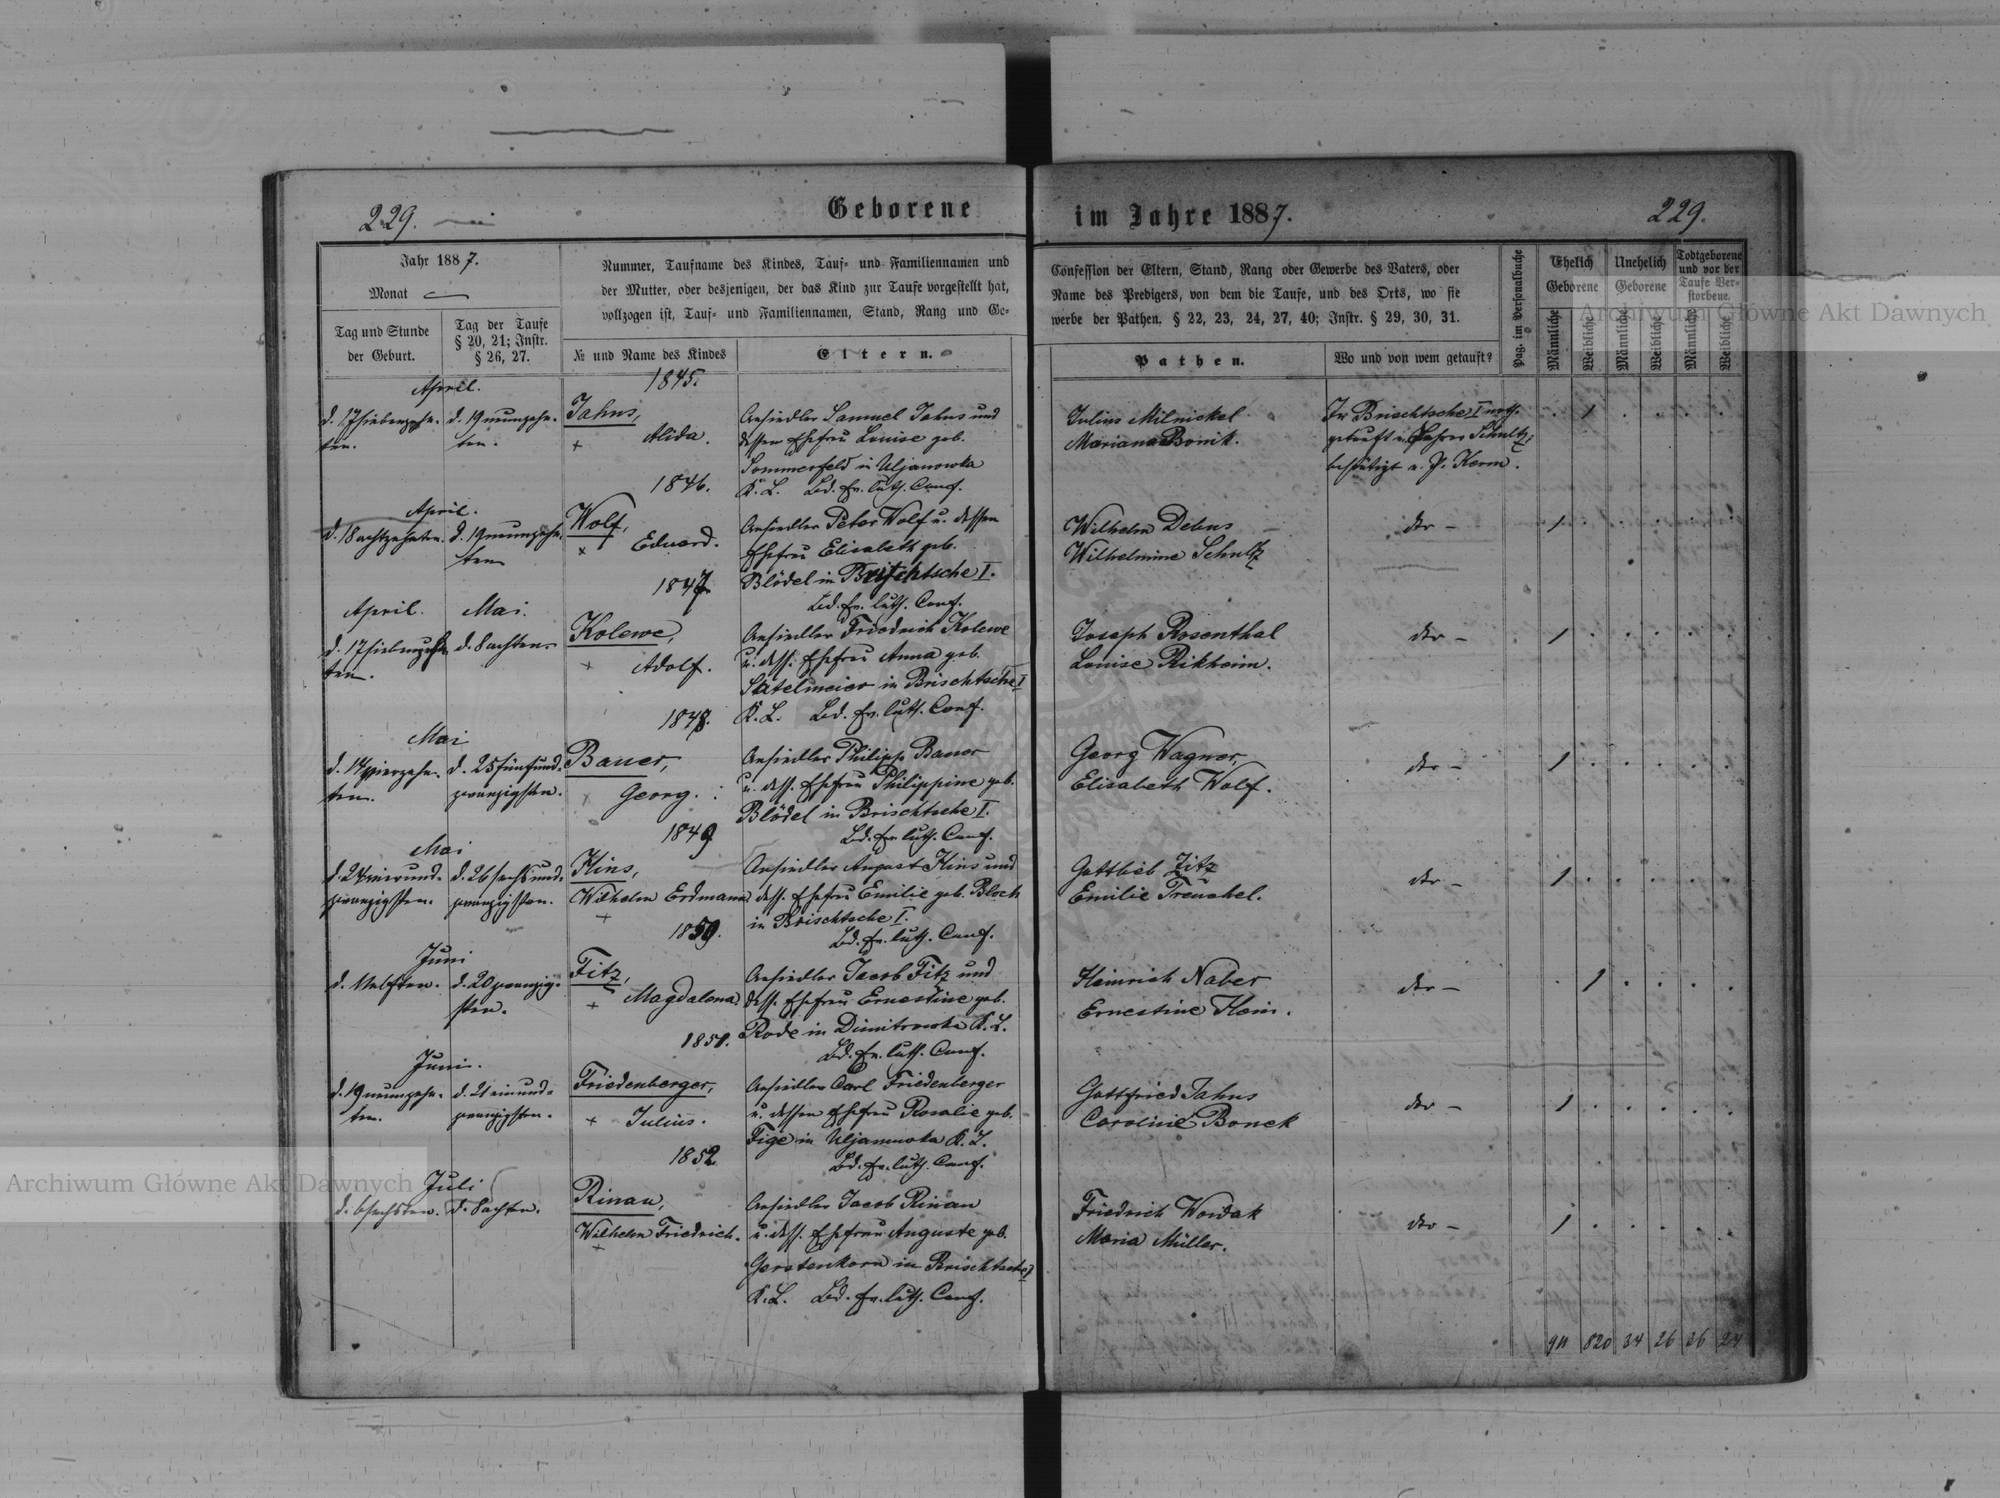 229.
Geborene im Jahre 1887.
229.
Jahr 1887.
Monat
Tag und Stunde der Geburt.
Tag der Taufe § 20, 21; Instr. § 26, 27.
Nummer, Taufname des Kindes, Tauf- und Familiennamen und
der Mutter, oder desjenigen, der das Kind zur Taufe vorgestellt hat,
vollzogen ist, Tauf- und Familiennamen, Stand, Rang und Ge-
№ und Name des Kindes
Eltern.
Confession der Eltern, Stand, Rang oder Gewerbe des Vaters, oder
Name des Predigers, von dem die Taufe, und des Orts, wo sie
werbe der Pathen. § 22, 23, 24, 27, 40; Instr. § 29, 30, 31.
Pathen.
Wo und von wem getauft?
Pag. im Personalbuche
Ehelich Geborene
Unehelich Geborene
Todtgeborene und vor der Taufe Verstorbene.
Männliche
Weibliche
Männliche
Weibliche
Männliche
Weibliche
April.
1845.
d. 17 siebenzehn-
ten.
d. 19 neunzehn-
ten.
Jahns,
Alida.
Ansiedler Samuel Jahns und
dessen Ehefrau Louise geb.
Sommerfeld in Uljanowka
K. L. Bd. Ev. luth. Conf.
Julius Milnickel
Mariana Bonik.
In Brischtsche I noth-
getauft v. Schultz,
bestätigt v. P. Kerm.
1
April.
1846.
d. 18 achtzehnten.
d. 19 neunzehn-
ten
Wolf,
Eduard.
Ansiedler Peter Wolf u. dessen
Ehefrau Elisabeth geb.
Blödel in Brischtsche I.
Bd. Ev. luth. Conf.
Wilhelm Debus
Wilhelmine Schultz
dto —
1
April. Mai.
1847.
d. 17 siebenzehn
ten.
d. 8 achten.
Kolewe,
Adolf.
Ansiedler Friedrich Kolewe
u. dess. Ehefrau Anna geb.
Satelmeier in Brischtsche I
K. L. Bd. Ev. luth. Conf.
Joseph Rosenthal
Louise Rikheim.
dto —
1
Mai
1848.
d. 14 vierzehn-
ten.
d. 25 fünfund-
zwanzigsten.
Bauer,
Georg.
Ansiedler Philipp Bauer
u. dess. Ehefrau Philippine geb.
Blödel in Brischtsche I.
Bd. Ev. luth. Conf.
Georg Wagner,
Elisabeth Wolf.
dto —
1
Mai
1849
d. 24 vierund-
zwanzigsten.
d. 26 sechsund-
zwanzigsten.
Hins,
Wilhelm Erdmann
Ansiedler August Hins und
dess. Ehefrau Emilie geb. Block
in Brischtsche I.
Bd. Ev. luth. Conf.
Gottlieb Zitz
Emilie Treuchel.
dto —
1
Juni
1850.
d. 11 elften.
d. 20 zwanzig-
sten.
Fitz,
Magdalena
Ansiedler Jacob Fitz und
dess. Ehefrau Ernestine geb.
Rode in Dimitrowka K. L.
Bd. Ev. luth. Conf.
Heinrich Naber
Ernestine Hein.
dto —
1
Juni.
1851.
d. 19 neunzehn-
ten.
d. 21 einund-
zwanzigsten.
Friedenberger,
Julius.
Ansiedler Carl Friedenberger
u. dessen Ehefrau Rosalie geb.
Fige in Uljanowka K. L.
Bd. Ev. luth. Conf.
Gottfried Jahns
Caroline Bonek
dto —
1
Juli
1852
d. 6 sechsten.
d. 8 achten.
Rinau,
Wilhelm Friedrich.
Ansiedler Jacob Rinau
u. dess. Ehefrau Auguste geb.
Gerstenkorn in Brischtsche I
K. L. Bd. Ev. luth. Conf.
Friedrich Wordak
Maria Müller.
dto —
1
820 34 26 26 24
Archiwum Główne Akt Dawnych
Archiwum Główne Akt Dawnych